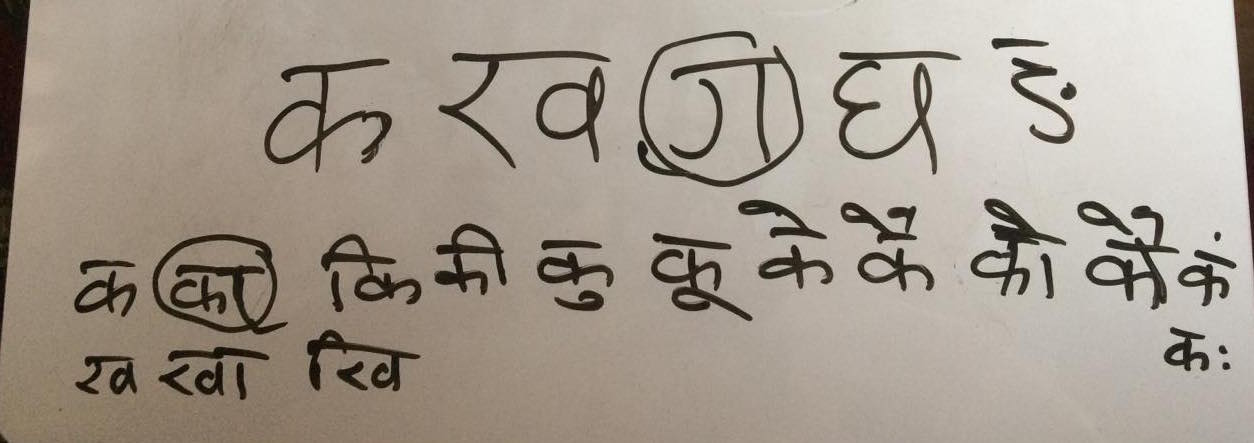 क ख ग घ ङ
क का कि की कु कू के कै को कौ कं
ख खा खि कः